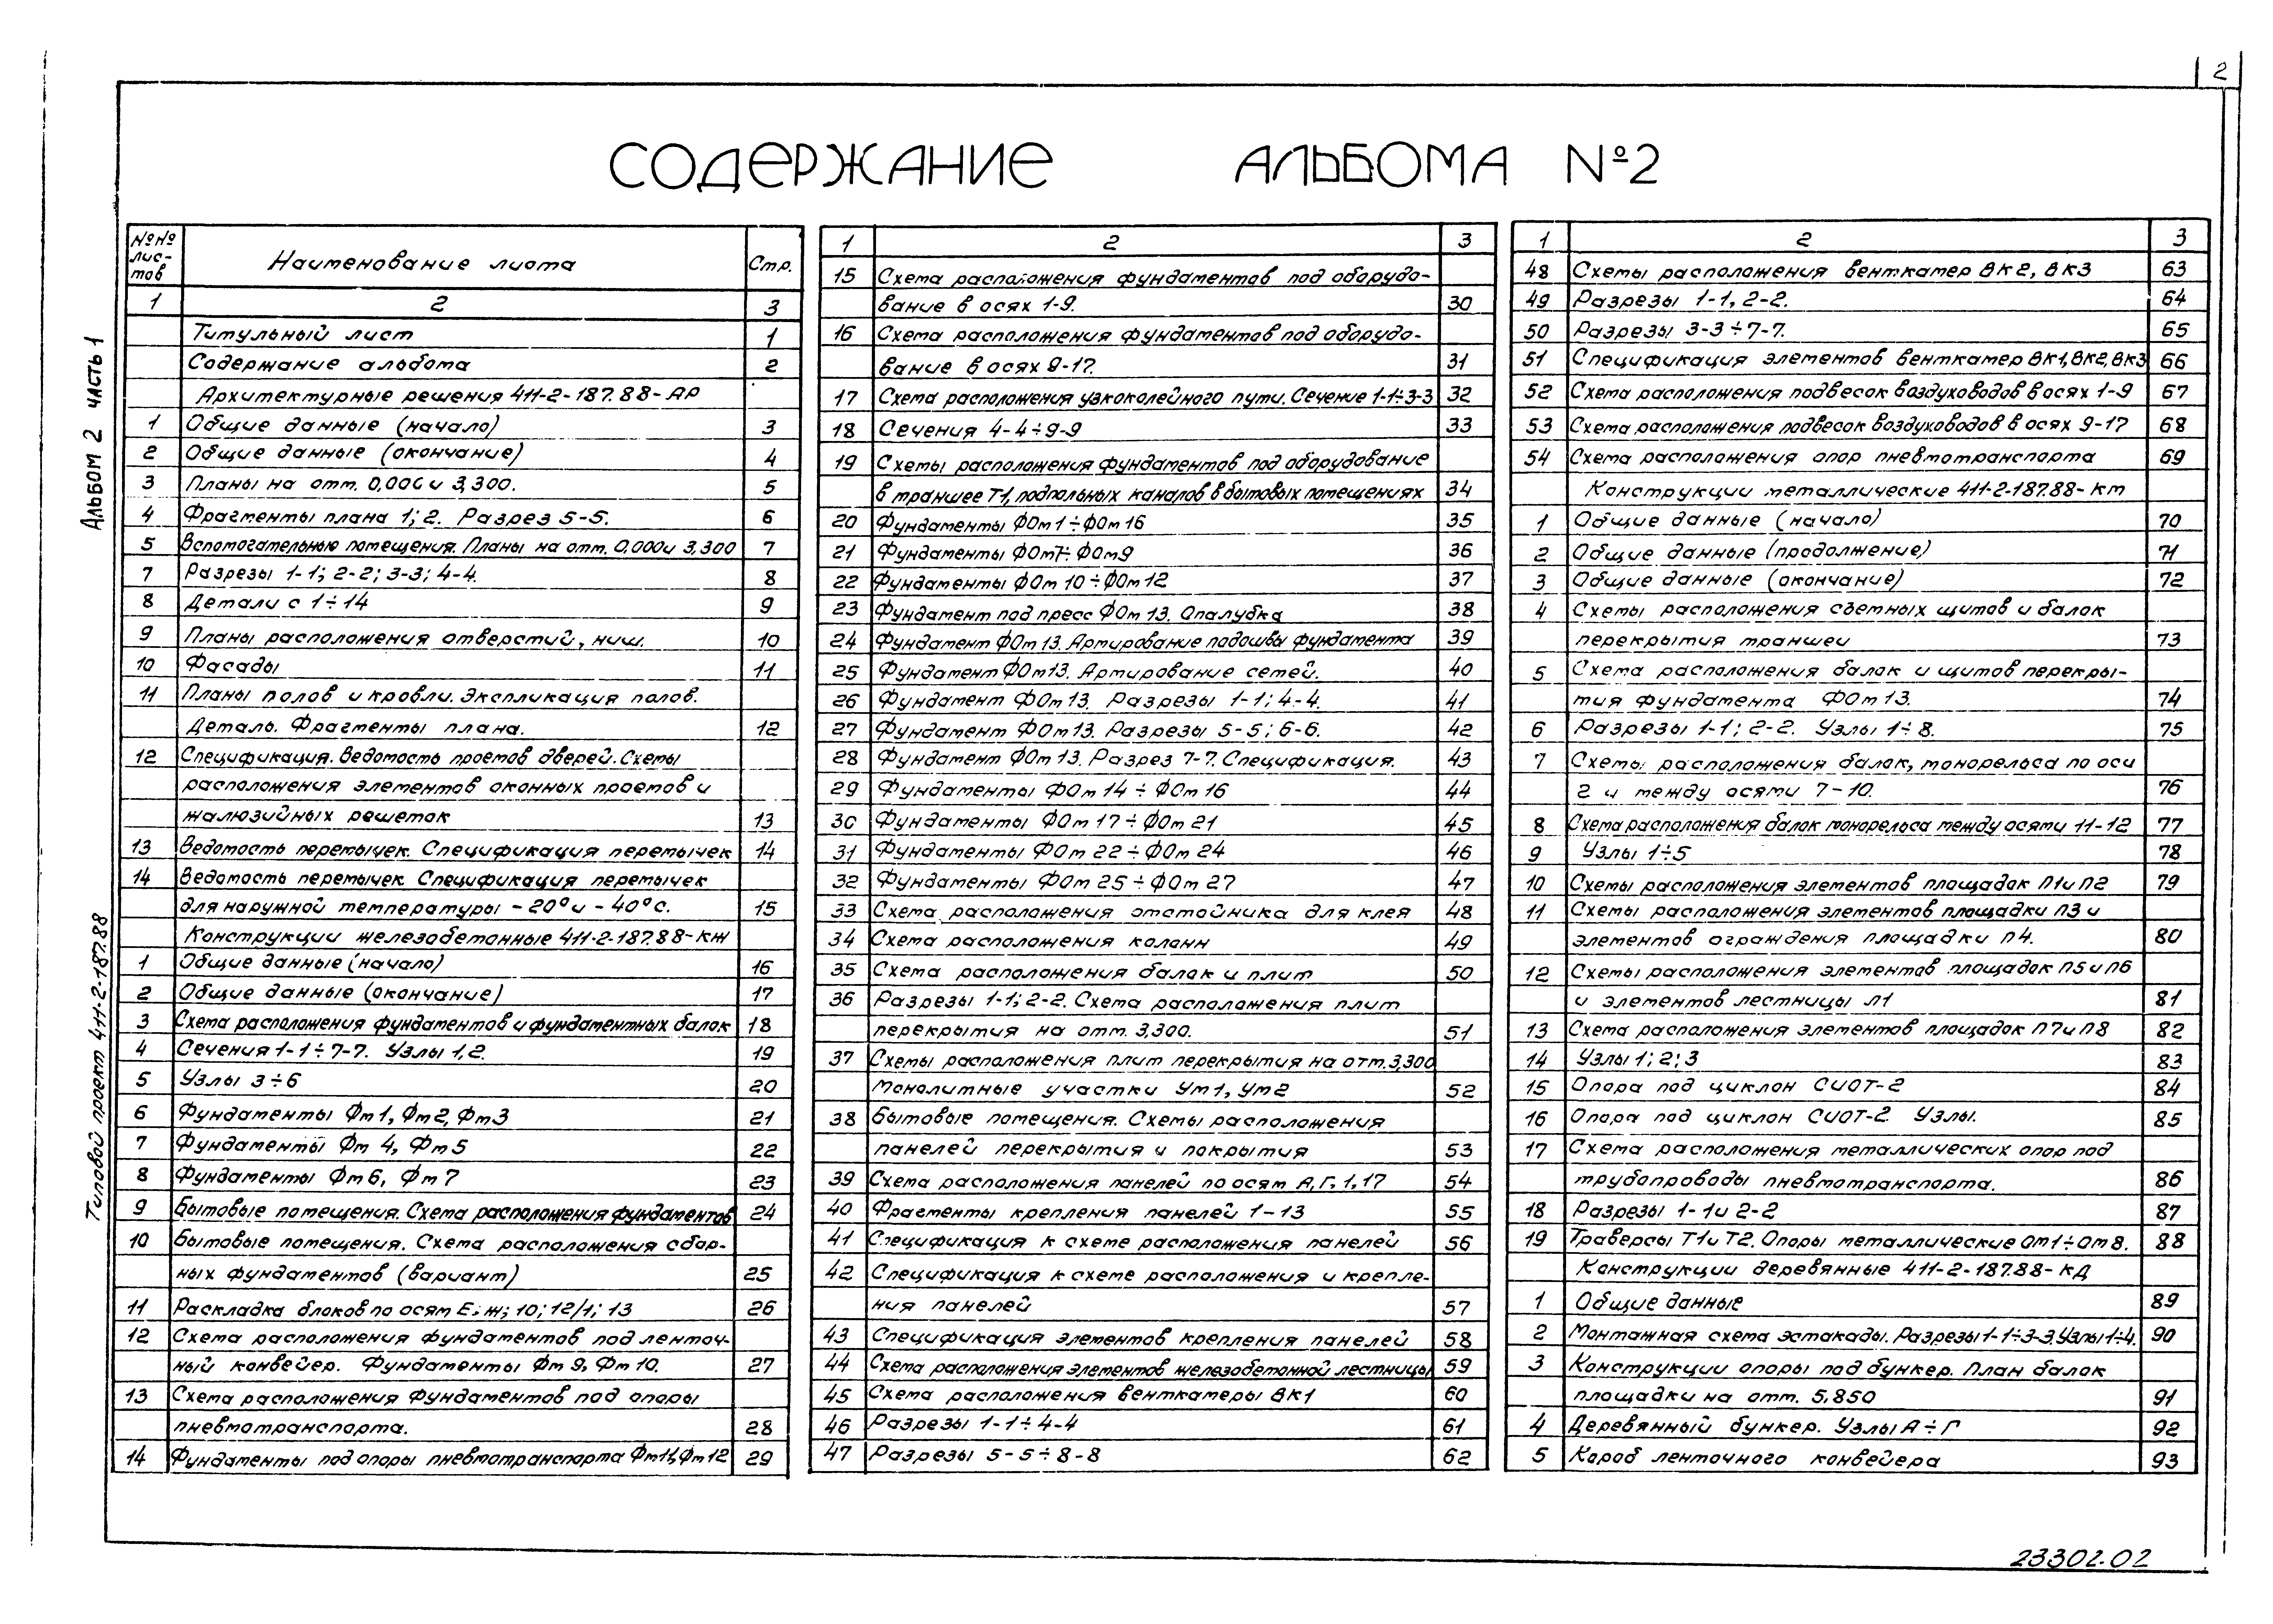 2
СОДЕРЖАНИЕ АЛЬБОМА №2
Альбом 2 часть 1
Типовой проект 411-2-187.88
№№ лис-тов Наименование листа Стр.
1 2 3
Титульный лист 1
Содержание альбома 2
Архитектурные решения 411-2-187.88-АР
1 Общие данные (начало) 3
2 Общие данные (окончание) 4
3 Планы на отм. 0,000 и 3,300. 5
4 Фрагменты плана 1; 2. Разрез 5-5. 6
5 Вспомогательные помещения. Планы на отм. 0,000 и 3,300 7
7 Разрезы 1-1; 2-2; 3-3; 4-4. 8
8 Детали с 1÷14 9
9 Планы расположения отверстий, ниш. 10
10 Фасады 11
11 Планы полов и кровли. Экспликация полов.
Деталь. Фрагменты плана. 12
12 Спецификация. Ведомость проемов дверей. Схемы
расположения элементов оконных проемов и
жалюзийных решеток 13
13 Ведомость перемычек. Спецификация перемычек 14
14 Ведомость перемычек. Спецификация перемычек
для наружной температуры -20° и -40°С. 15
Конструкции железобетонные 411-2-187.88-КЖ
1 Общие данные (начало) 16
2 Общие данные (окончание) 17
3 Схема расположения фундаментов и фундаментных балок 18
4 Сечения 1-1÷7-7. Узлы 1,2. 19
5 Узлы 3÷6 20
6 Фундаменты Фм1, Фм2, Фм3 21
7 Фундаменты Фм 4, Фм5 22
8 Фундаменты Фм6, Фм7 23
9 Бытовые помещения. Схема расположения фундаментов 24
10 Бытовые помещения. Схема расположения сбор-
ных фундаментов (вариант) 25
11 Раскладка блоков по осям Е; Ж; 10; 12/1; 13 26
12 Схема расположения фундаментов под ленточ-
ный конвейер. Фундаменты Фм 9, Фм 10. 27
13 Схема расположения фундаментов под опоры
пневмотранспорта. 28
14 Фундаменты под опоры пневмотранспорта Фм11, Фм12 29
1 2 3
15 Схема расположения фундаментов под оборудо-
вание в осях 1-9. 30
16 Схема расположения фундаментов под оборудо-
вание в осях 9-17. 31
17 Схема расположения узкоколейного пути. Сечение 1-1÷3-3 32
18 Сечения 4-4÷9-9 33
19 Схемы расположения фундаментов под оборудование
в траншее Т1, подпольных каналов в бытовых помещениях 34
20 Фундаменты ФОм1÷ФОм16 35
21 Фундаменты ФОм7÷ФОм9 36
22 Фундаменты ФОм 10÷ФОм12 37
23 Фундамент под пресс ФОм 13. Опалубка 38
24 Фундамент ФОм 13. Армирование подошвы фундамента 39
25 Фундамент ФОм13. Армирование сетей. 40
26 Фундамент ФОм 13. Разрезы 1-1; 4-4. 41
27 Фундамент ФОм 13. Разрезы 5-5; 6-6. 42
28 Фундамент ФОм 13. Разрез 7-7. Спецификация. 43
29 Фундаменты ФОм 14÷ФОм 16 44
30 Фундаменты ФОм 17÷ФОм 21 45
31 Фундаменты ФОм 22÷ФОм 24 46
32 Фундаменты ФОм 25÷ФОм 27 47
33 Схема расположения отстойника для клея 48
34 Схема расположения колонн 49
35 Схема расположения балок и плит 50
36 Разрезы 1-1; 2-2. Схема расположения плит
перекрытия на отм. 3,300. 51
37 Схемы расположения плит перекрытия на отм. 3,300
Монолитные участки Ум1, Ум2 52
38 Бытовые помещения. Схемы расположения
панелей перекрытия и покрытия 53
39 Схема расположения панелей по осям А, Г, 1, 17 54
40 Фрагменты крепления панелей 1-13 55
41 Спецификация к схеме расположения панелей 56
42 Спецификация к схеме расположения и крепле-
ния панелей 57
43 Спецификация элементов крепления панелей 58
44 Схема расположения элементов железобетонной лестницы 59
45 Схема расположения венткамеры ВК1 60
46 Разрезы 1-1÷4-4 61
47 Разрезы 5-5÷8-8 62
1 2 3
48 Схемы расположения венткамер ВК2, ВК3 63
49 Разрезы 1-1, 2-2. 64
50 Разрезы 3-3÷7-7. 65
51 Спецификация элементов венткамер ВК1, ВК2, ВК3 66
52 Схема расположения подвесок воздуховодов в осях 1-9 67
53 Схема расположения подвесок воздуховодов в осях 9-17 68
54 Схема расположения опор пневмотранспорта 69
Конструкции металлические 411-2-187.88-КМ
1 Общие данные (начало) 70
2 Общие данные (продолжение) 71
3 Общие данные (окончание) 72
4 Схемы расположения съемных щитов и балок
перекрытия траншеи 73
5 Схема расположения балок и щитов перекры-
тия фундамента ФОм 13. 74
6 Разрезы 1-1; 2-2. Узлы 1÷8. 75
7 Схемы расположения балок, монорельса по оси
2 и между осями 7-10. 76
8 Схема расположения балок монорельса между осями 11-12 77
9 Узлы 1÷5 78
10 Схемы расположения элементов площадок П1 и П2 79
11 Схемы расположения элементов площадки П3 и
элементов ограждения площадки П4. 80
12 Схемы расположения элементов площадок П5 и П6
и элементов лестницы Л1 81
13 Схема расположения элементов площадок П7 и П8 82
14 Узлы 1; 2; 3 83
15 Опора под циклон СИОТ-2 84
16 Опора под циклон СИОТ-2 Узлы. 85
17 Схема расположения металлических опор под
трубопроводы пневмотранспорта. 86
18 Разрезы 1-1 и 2-2 87
19 Траверсы Т1 и Т2. Опоры металлические Ом1÷Ом8. 88
Конструкции деревянные 411-2-187.88-КД
1 Общие данные 89
2 Монтажная схема эстакады. Разрезы 1-1÷3-3. Узлы 1÷4. 90
3 Конструкции опоры под бункер. План балок
площадки на отм. 5,850 91
4 Деревянный бункер. Узлы А÷Г 92
5 Короб ленточного конвейера 93
23302-02